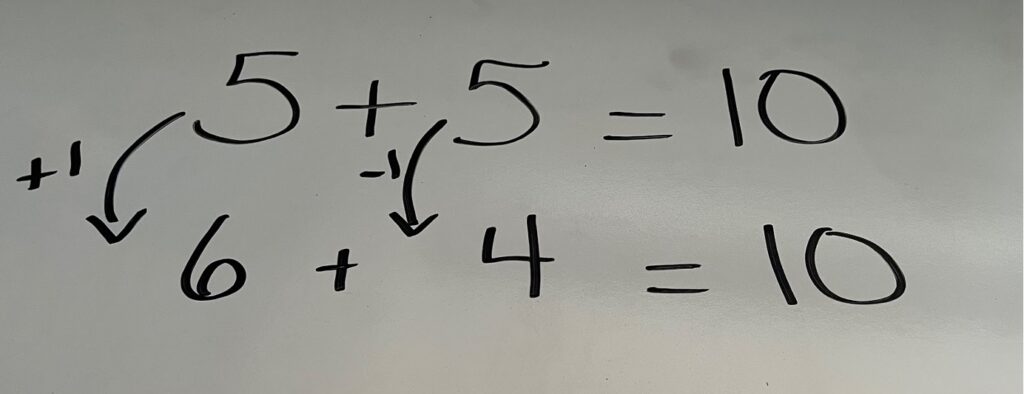 5 + 5 = 10
+1 -1
6 + 4 = 10